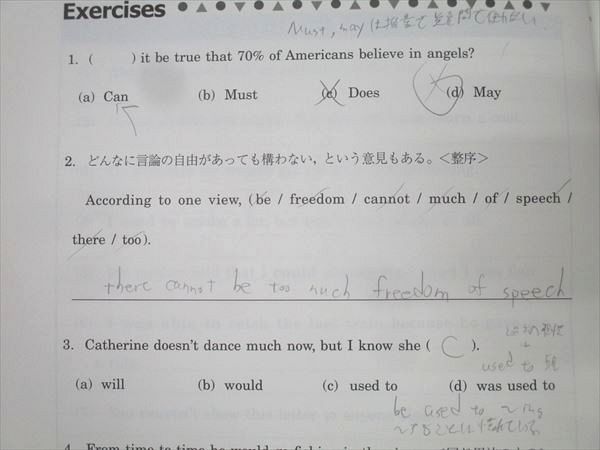 Exercises
Must, may は推量で疑問で使わない.
1. ( ) it be true that 70% of Americans believe in angels?
(a) Can (b) Must (c) Does (d) May
2. どんなに言論の自由があっても構わない，という意見もある。＜整序＞
According to one view, (be / freedom / cannot / much / of / speech /
there / too).
there cannot be too much freedom of speech
3. Catherine doesn't dance much now, but I know she ( C ).
used to
(a) will (b) would (c) used to (d) was used to
be used to ~ing
~することに慣れている